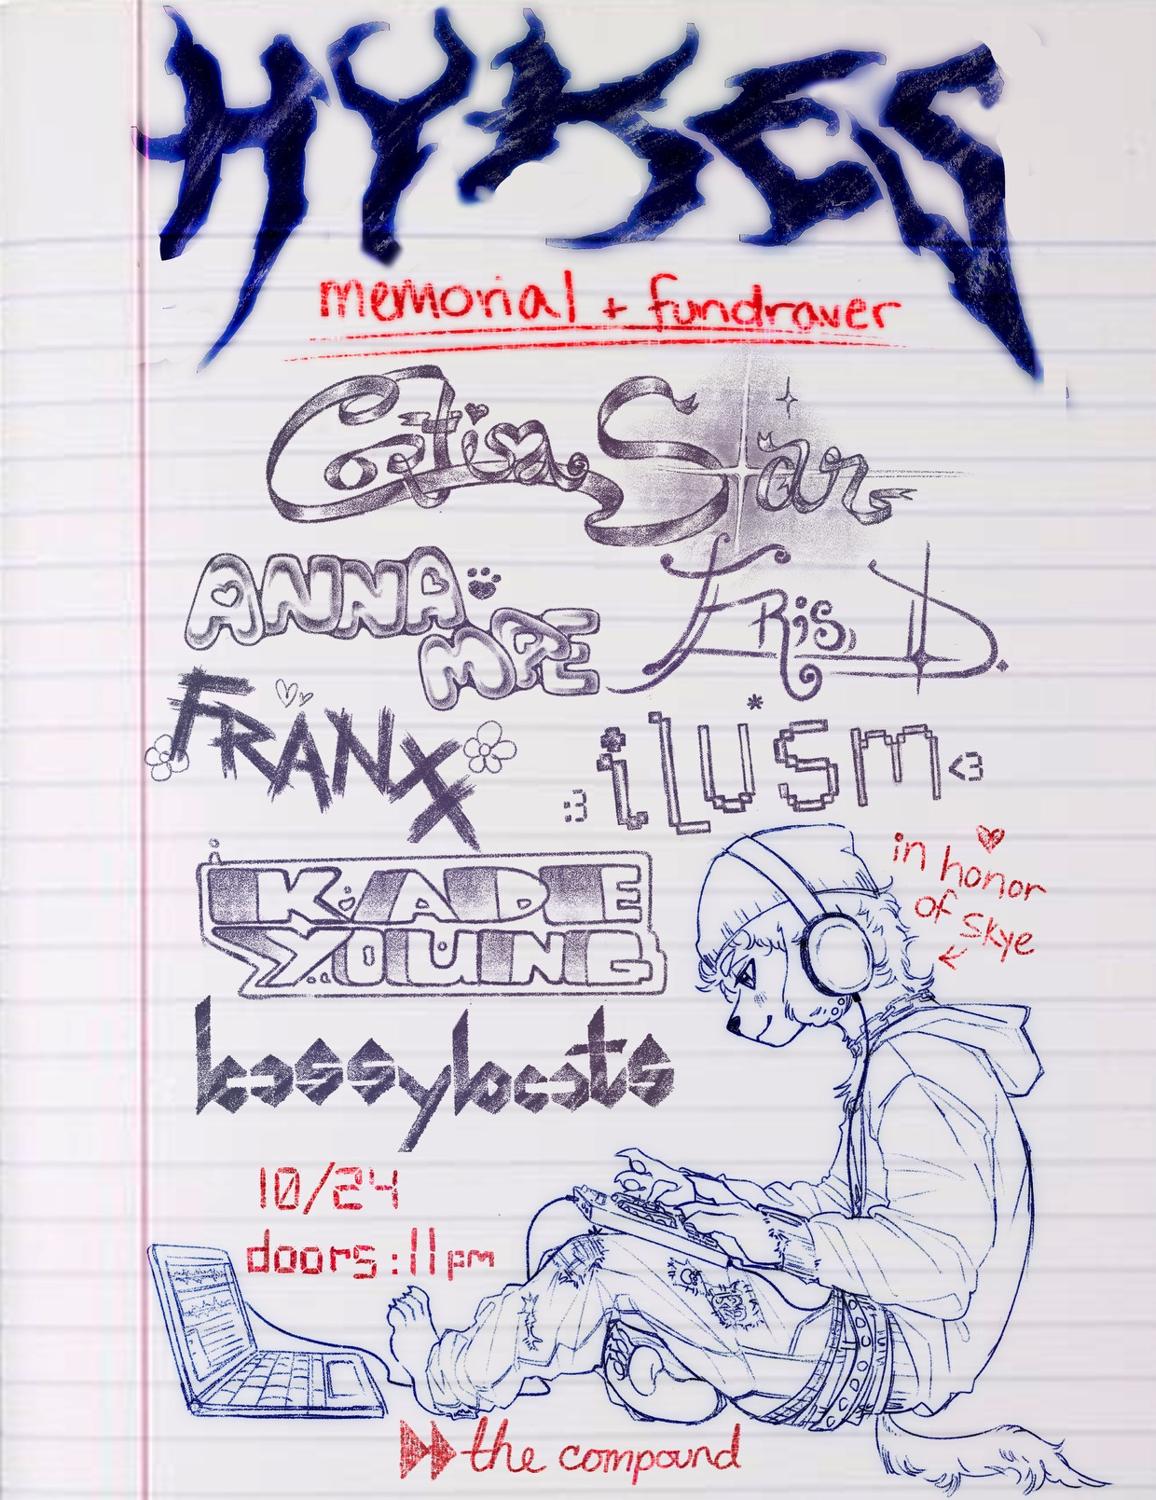 HYKES
memorial + fundraver
Cortisa Star
ANNA
MAE
KRis, D
FRANXX
* iLUSM <3
:3
KADE
YOUNG
bassybeats
in honor
of skye
10/24
doors: 11pm
the compound